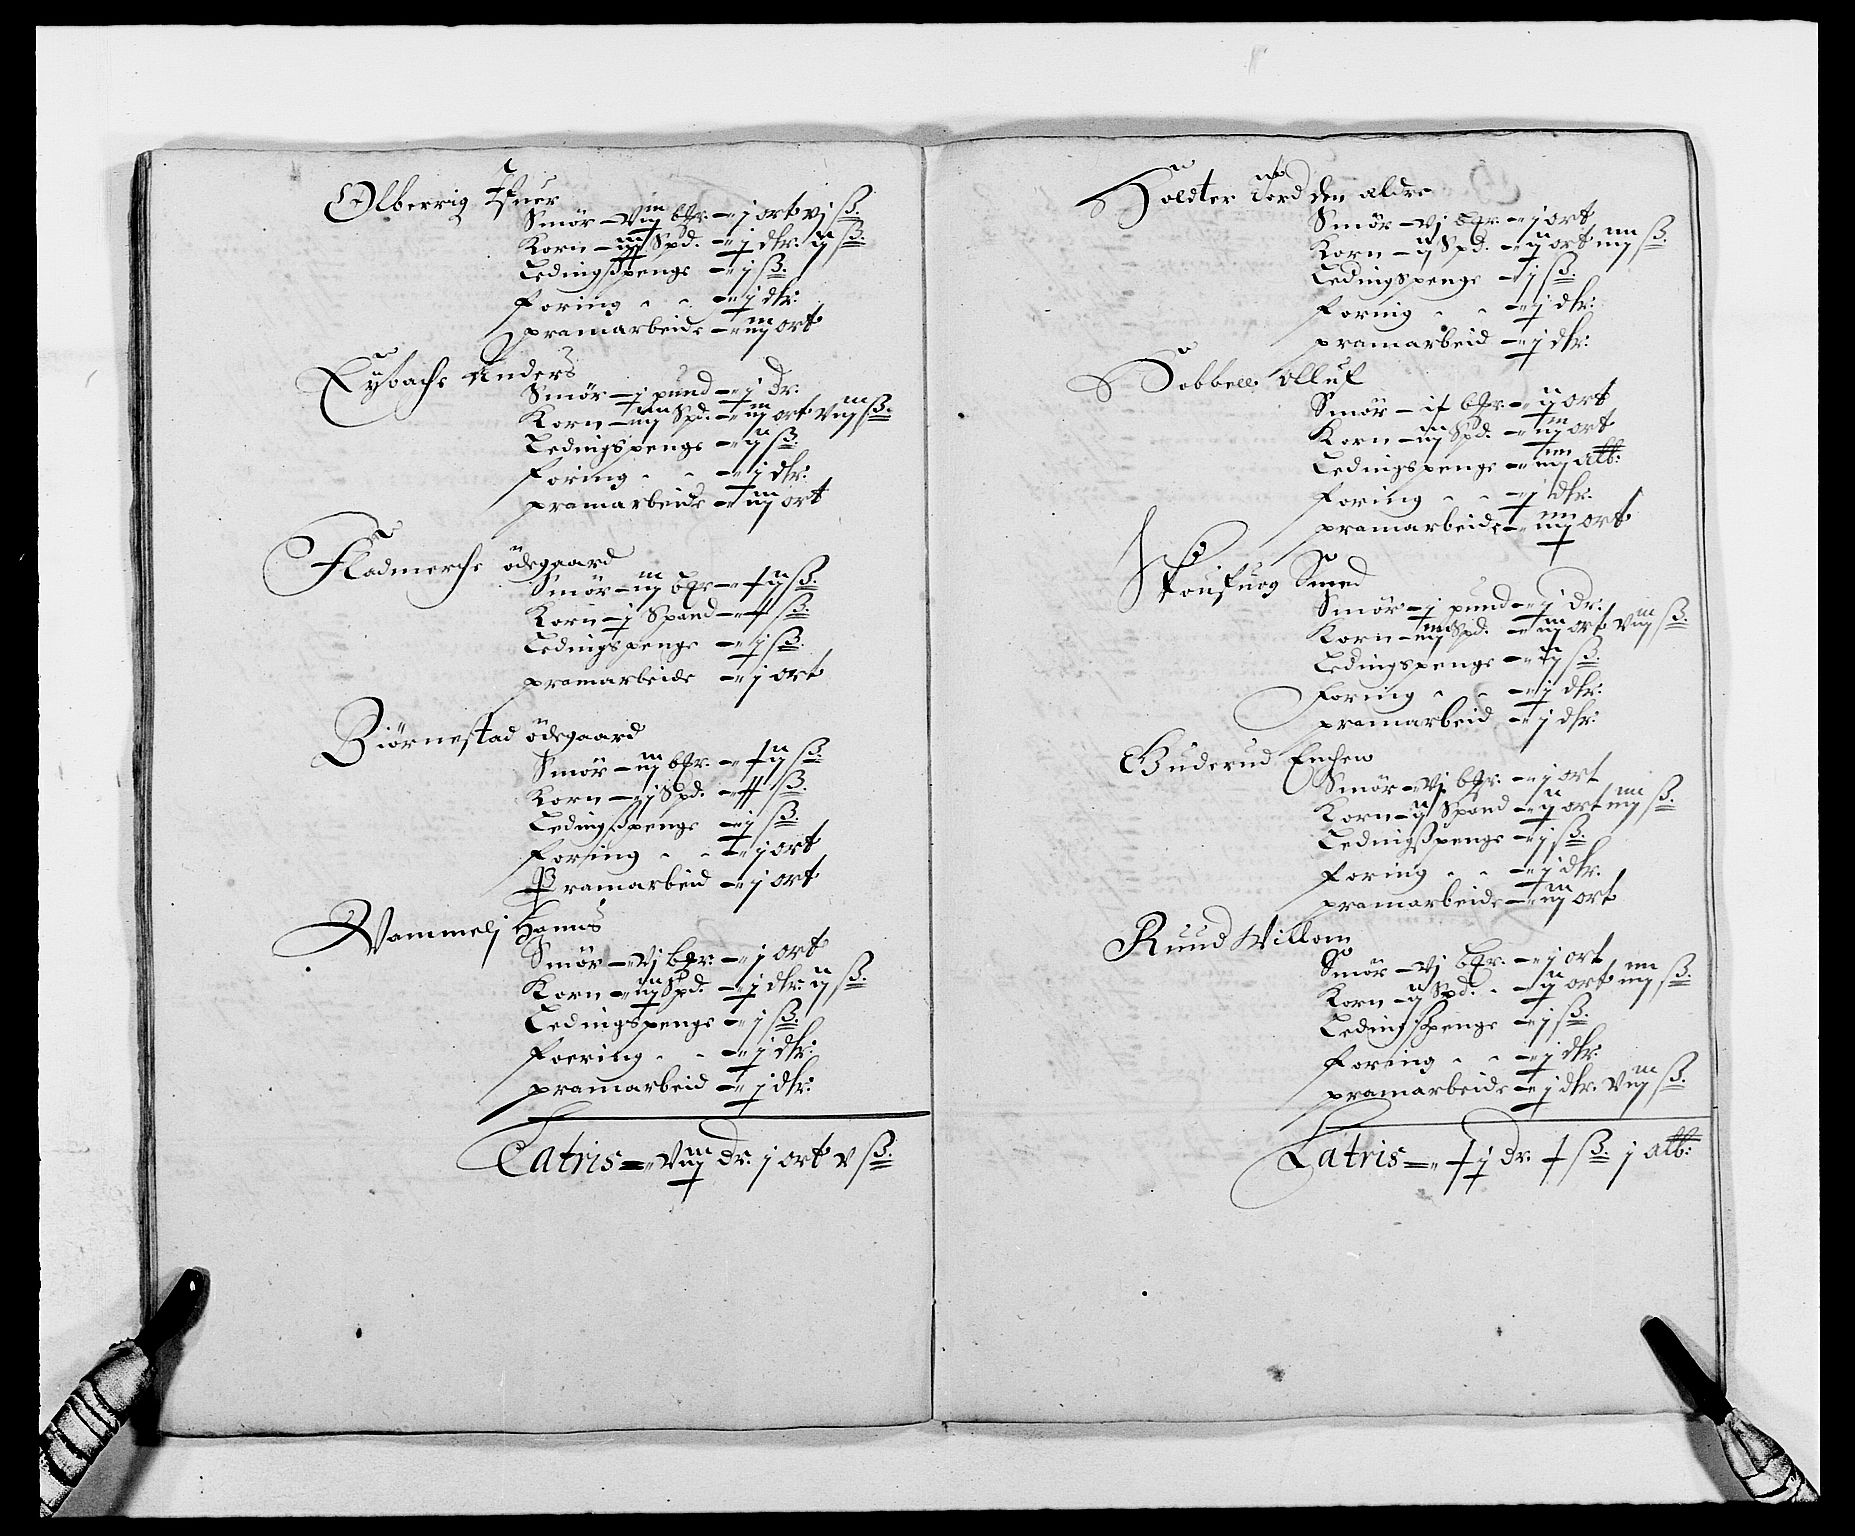 Olberrig Ifuer
Smör - viij bfr. - j ort vj ß.
Korn - iij Spd. - j dlr. ij ß.
Ledingspenge - j ß.
Foring - j dlr:
pramarbeide - iij ort
Anders
Smör - j pund - j Dr.
Korn - iiij Spd. - iij ort viij ß.
Ledingspenge - ij ß.
Foring - j dlr:
pramarbeide - iij ort
Fladmerche ödegaard
Smör - iij bfr - xij ß.
Korn - j Spand - x ß.
Ledingspenge - j ß.
pramarbeide - j ort
Biörnestad ödegaard
Smör - iij bfr. - xij ß
Korn - j Spd. - x ß.
Ledingspenge - j ß.
Foring - j ort
Pramarbeid - j ort
Wammelj Hanns
Smör - vj bfr: - j ort
Korn - iij Spd. - j dlr: ij ß.
Ledingspenge - j ß.
Foering - j dlr:
pramarbeid - j dlr:
Latris = viij dr. j ort v ß.
Holdter Tord den aldre
Smör - vj bfr. - j ort
Korn - ij Spd. - ij ort iiij ß.
Ledingspenge - j ß.
Foring - j dlr:
pramarbeid - j dlr:
Hobbell Olluf
Smör - ix bfr - ij ort
Korn - iij Spd. - iij ort
Ledingspenge - iiij alb:
Foring - j dlr:
pramarbeide - iiij ort
Smed
Smör - j pund - j Dr:
Korn - iiij Spd. - iij ort viij ß.
Ledingspenge - ij ß.
Foring - j dlr:
pramarbeid - j dlr:
Guderud Enchen
Smör - vj bfr. - j ort
Korn - ij Spand - ij ort iiij ß.
Ledingspenge - j ß.
Foring - j dlr.
pramarbeide - iij ort
Ruud Willom
Smör - vj bfr. - j ort
Korn - ij Spd. - ij ort iiij ß.
Ledingspenge - j ß.
Foring - j dlr:
pramarbeide - j dlr. viij ß.
Latris = xj dr. x ß. j alb: